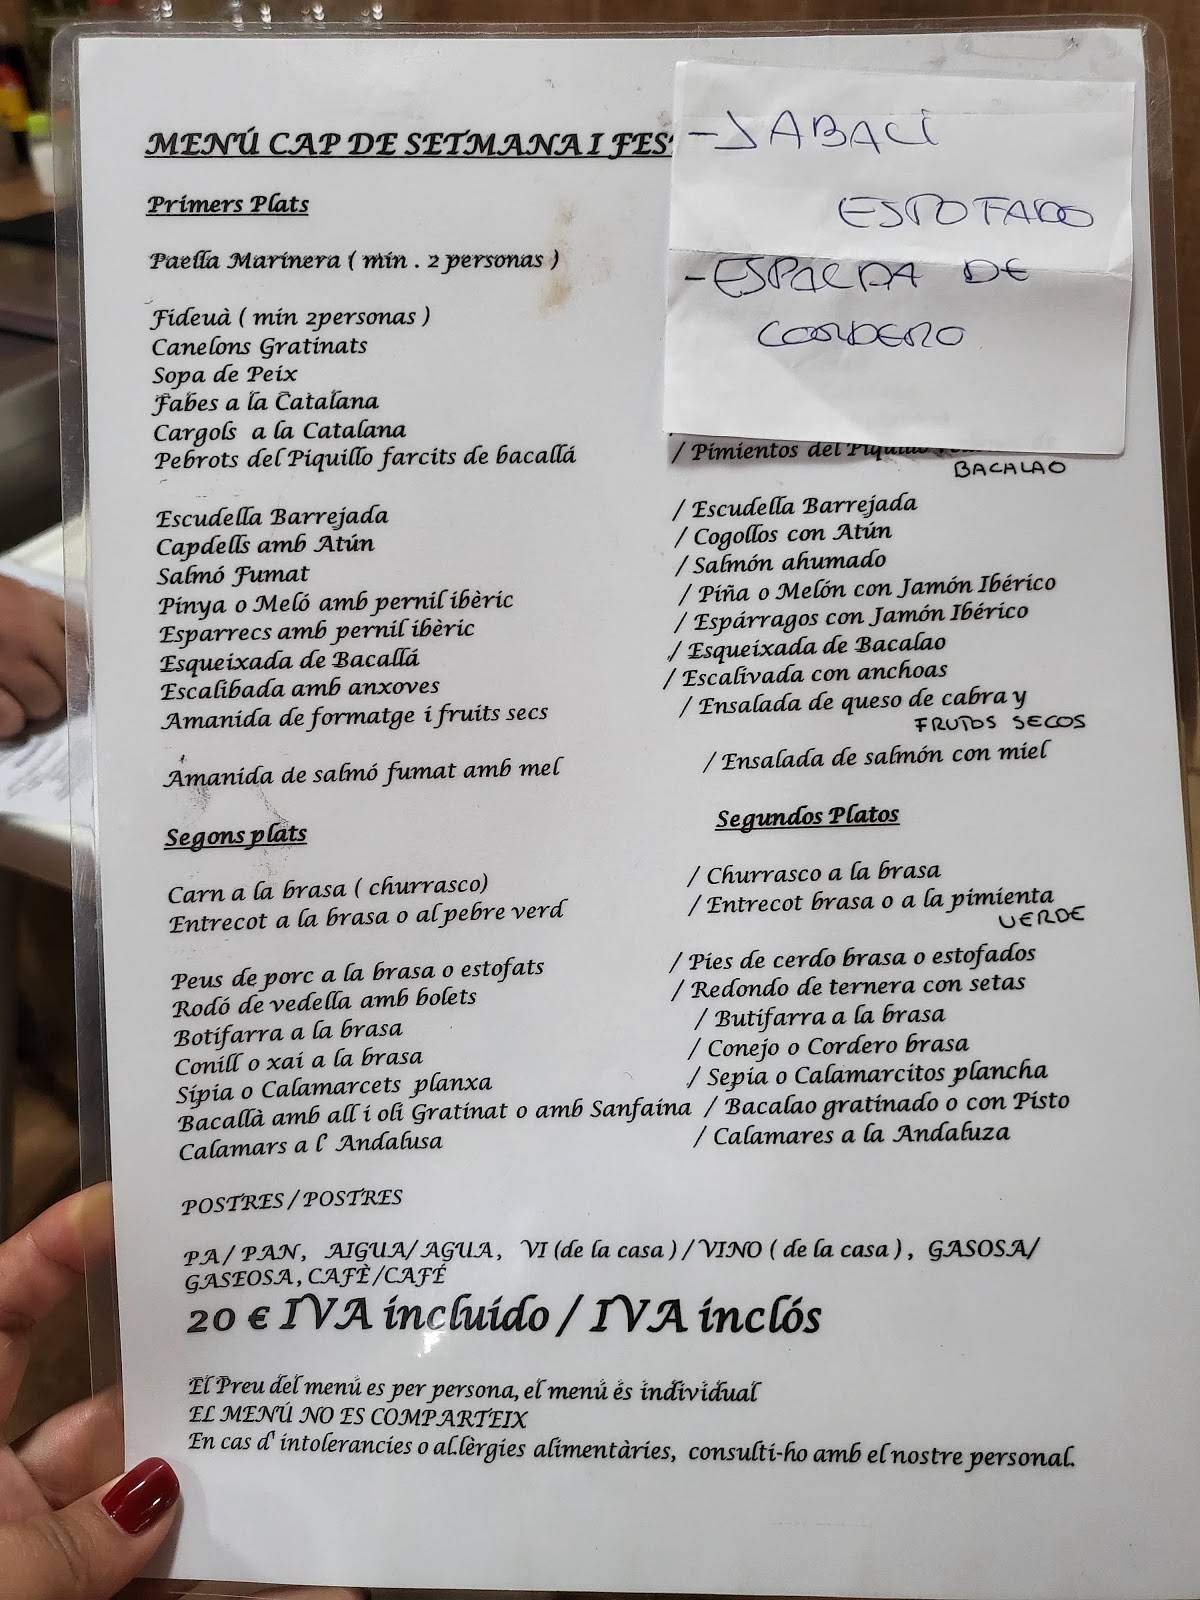 MENÚ CAP DE SETMANA I FES
- JABALÍ
ESTOFADO
- ESPALDA DE
CORDERO
Primers Plats
Paella Marinera ( min . 2 personas )
Fideuà ( min 2personas )
Canelons Gratinats
Sopa de Peix
Fabes a la Catalana
Cargols a la Catalana
Pebrots del Piquillo farcits de bacallá / Pimientos del Piquillo
BACALAO
Escudella Barrejada / Escudella Barrejada
Capdells amb Atún / Cogollos con Atún
Salmó Fumat / Salmón ahumado
Pinya o Meló amb pernil ibèric / Piña o Melón con Jamón Ibérico
Esparrecs amb pernil ibèric / Espárragos con Jamón Ibérico
Esqueixada de Bacallá / Esqueixada de Bacalao
Escalibada amb anxoves / Escalivada con anchoas
Amanida de formatge i fruits secs / Ensalada de queso de cabra y
FRUTOS SECOS
Amanida de salmó fumat amb mel / Ensalada de salmón con miel
Segons plats Segundos Platos
Carn a la brasa ( churrasco) / Churrasco a la brasa
Entrecot a la brasa o al pebre verd / Entrecot brasa o a la pimienta
VERDE
Peus de porc a la brasa o estofats / Pies de cerdo brasa o estofados
Rodó de vedella amb bolets / Redondo de ternera con setas
Botifarra a la brasa / Butifarra a la brasa
Conill o xai a la brasa / Conejo o Cordero brasa
Sípia o Calamarcets planxa / Sepia o Calamarcitos plancha
Bacallà amb all i oli Gratinat o amb Sanfaina / Bacalao gratinado o con Pisto
Calamars a l' Andalusa / Calamares a la Andaluza
POSTRES / POSTRES
PA/ PAN, AIGUA/ AGUA, VI (de la casa ) / VINO ( de la casa ) , GASOSA/
GASEOSA, CAFÈ/CAFÉ
20 € IVA incluido / IVA inclós
El Preu del menú es per persona, el menú és individual
EL MENÚ NO ES COMPARTEIX
En cas d' intolerancies o al.lèrgies alimentàries, consulti-ho amb el nostre personal.